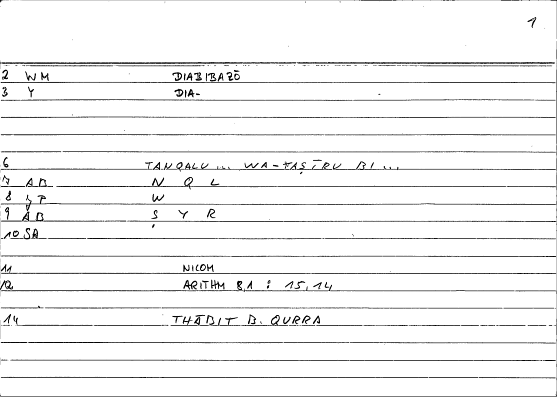 1
2 WM DIABIBAZŌ
3 Y DIA-
6 TANQALU ... WA-TAṢĪRU BI ...
7 AB N Q L
8 W
9 AB Ṣ Y R
10 SA
11 NICOM
12 ARITHM 8,1 : 15,14
14 THĀBIT B. QURRA